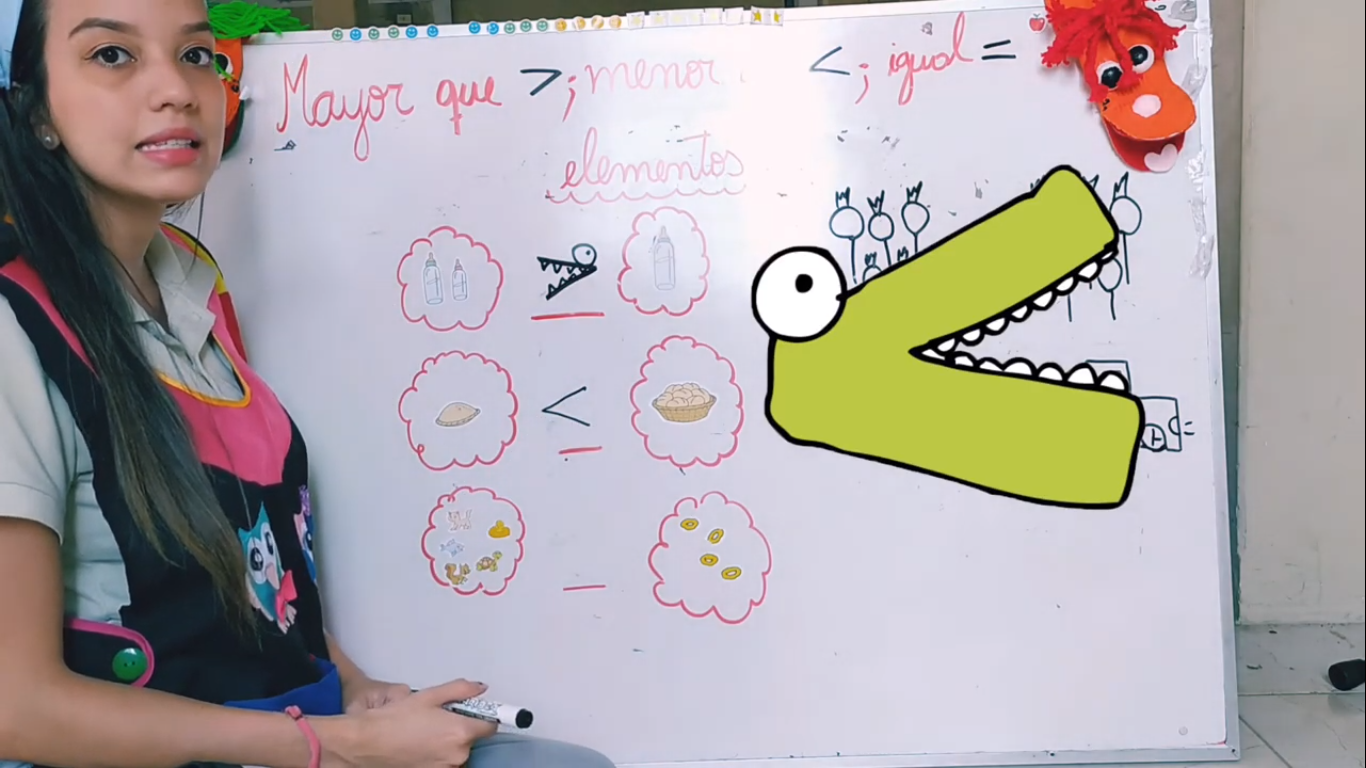 Mayor que >; menor <; igual =
elementos
<